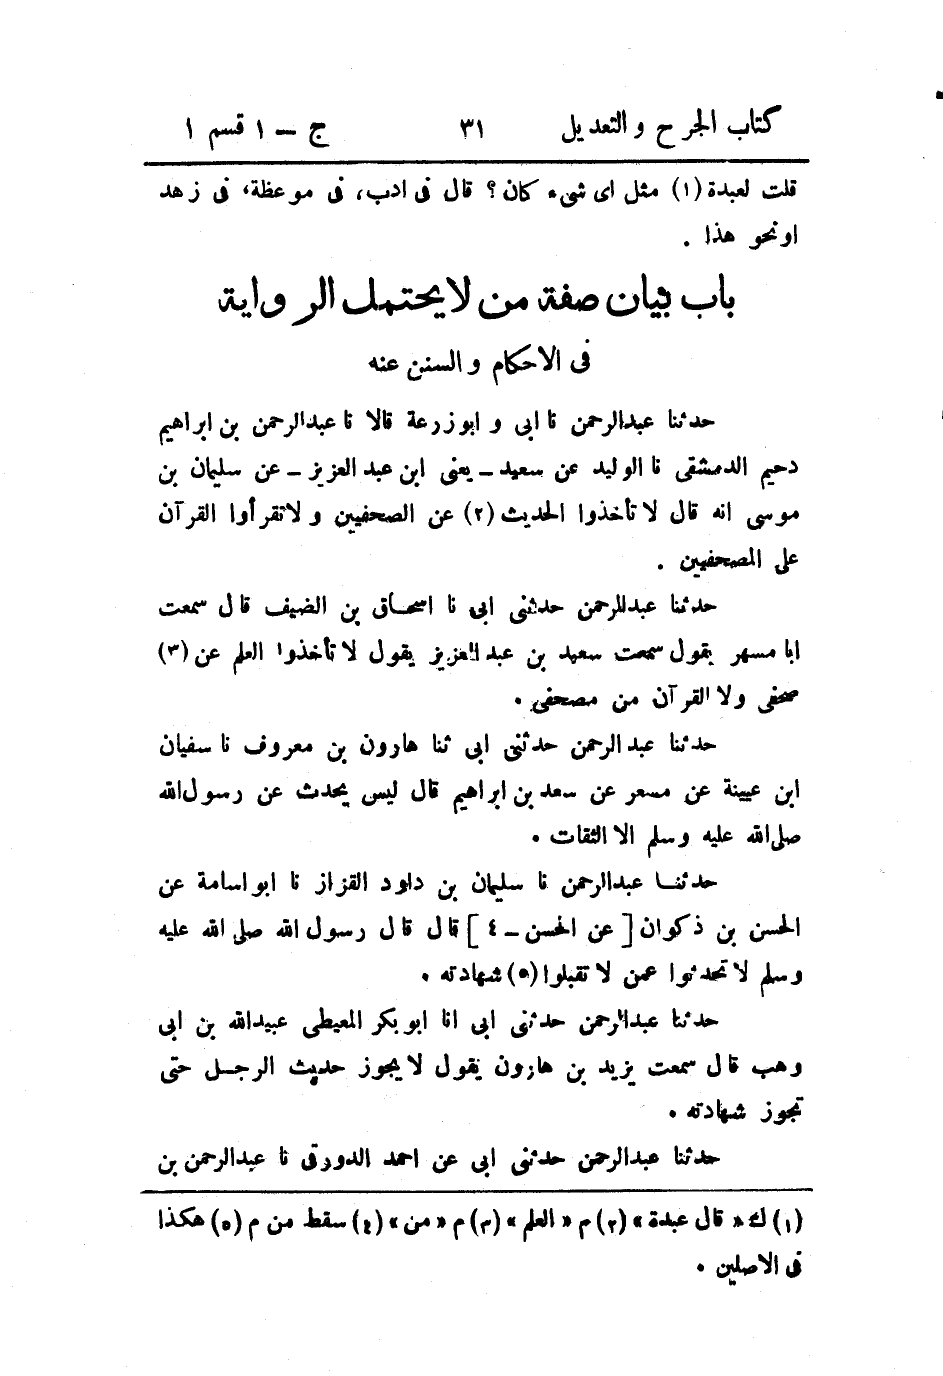 كتاب الجرح والتعديل ٣١ ج – ١ قسم ١
قلت لعبدة (١) مثل اى شىء كان؟ قال فى ادب، فى موعظة، فى زهد
اونحو هذا .
باب بيان صفة من لا يحتمل الرواية
فى الاحكام والسنن عنه
حدثنا عبدالرحمن نا ابى و ابوزرعة قالا نا عبدالرحمن بن ابراهيم
دحيم الدمشقى نا الوليد عن سعيد – يعنى ابن عبد العزيز – عن سليمان بن
موسى انه قال لا تأخذوا الحديث (٢) عن الصحفيين ولا تقرأوا القرآن
على المصحفيين .
حدثنا عبدالرحمن حدثنى ابى نا اسحاق بن الضيف قال سمعت
ابا مسهر يقول سمعت سعيد بن عبد العزيز يقول لا تأخذوا العلم عن (٣)
صحفى ولا القرآن من مصحفى .
حدثنا عبد الرحمن حدثنى ابى ثنا هارون بن معروف نا سفيان
ابن عيينة عن مسعر عن سعد بن ابراهيم قال ليس يحدث عن رسول الله
صلى الله عليه وسلم الا الثقات .
حدثنا عبدالرحمن نا سليمان بن داود القزاز نا ابو اسامة عن
الحسن بن ذكوان [ عن الحسن – ٤ ] قال قال رسول الله صلى الله عليه
وسلم لا تحدثوا عمن لا تقبلوا (٥) شهادته .
حدثنا عبدالرحمن حدثنى ابى انا ابو بكر المعيطى عبيدالله بن ابى
وهب قال سمعت يزيد بن هارون يقول لا يجوز حديث الرجل حتى
تجوز شهادته .
حدثنا عبدالرحمن حدثنى ابى عن احمد الدورقى نا عبدالرحمن بن
(١) ك « قال عبدة » (٢) م « العلم » (٣) م « من » (٤) سقط من م (٥) هكذا
فى الاصلين .